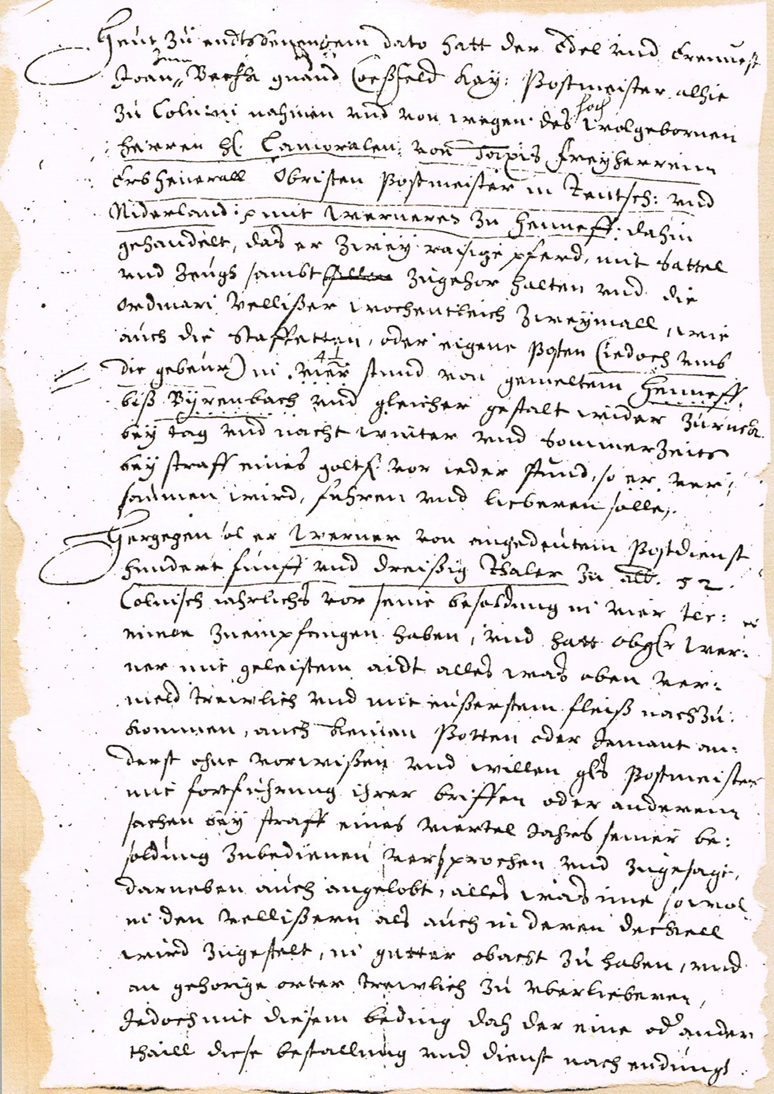 Heut zu endtsbenentem dato hatt der Edel und Ernvest
Joan Bechss gnand Coeßfeld Kay: Postmeister alhie
zu Colnin nahmen und von wegen des hoch wolgebornen
herren h. Lamoralen von Taxis freyherren
Erb Generall Obristen Postmeister in Teutsch: und
Niderland: mit Werneren zu Henneff dahin
gehandelt, das er zwey raisige pferd, mit Sattel
und Zeugs sambt zugehor halten und die
Ordinari Vellißer wochentlich zweymall, wie
auch die Staffetten, oder eigene Posten (iedoch umb
die gebeur) in vier 4½ stund von gemeltem Henneff
biß Byrenbach und gleicher gestalt wider zuruck
bey tag und nacht winter und Sommerzeits
bey straff eines goltf. vor ieder stund, so er ver:
saumen wird, fuhren und lieberen solle,
Hergegen sol er Werner von angedeutem Postdienst
hundert funff und dreißig Thaler zu alb. 52
Colnisch iahrlichs vor seine besoldung in vier ter:
minen zuempfangen haben, und hatt obgr Wer:
ner mit geleistem aidt alles was oben ver:
meld trewlich und mit eußerstem fleiß nachzu:
kommen, auch keinen Potten oder Jemant an:
derst ohne vorwißen und willen gts Postmeisters
mit fortfuhrung ihrer briffen oder anderem
sachen bey straff eines viertel Jahrs seiner be:
soldung zubedienen versprochen und zugesagt,
darneben auch angelobt, alles was ime sowol
in den vellißern als auch in deren deckell
wird zugestelt, in gutter obacht zu haben, und
an gehorige orter trewlich zu uberlieberen,
Jedoch mit diesem beding daß der eine od ander
thaill diese bestallung und dienst nach endung